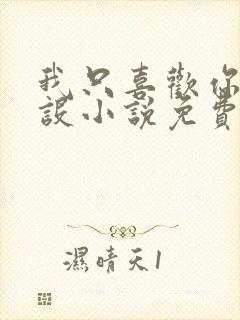 我只喜歡你
設小說免費
濕晴天1